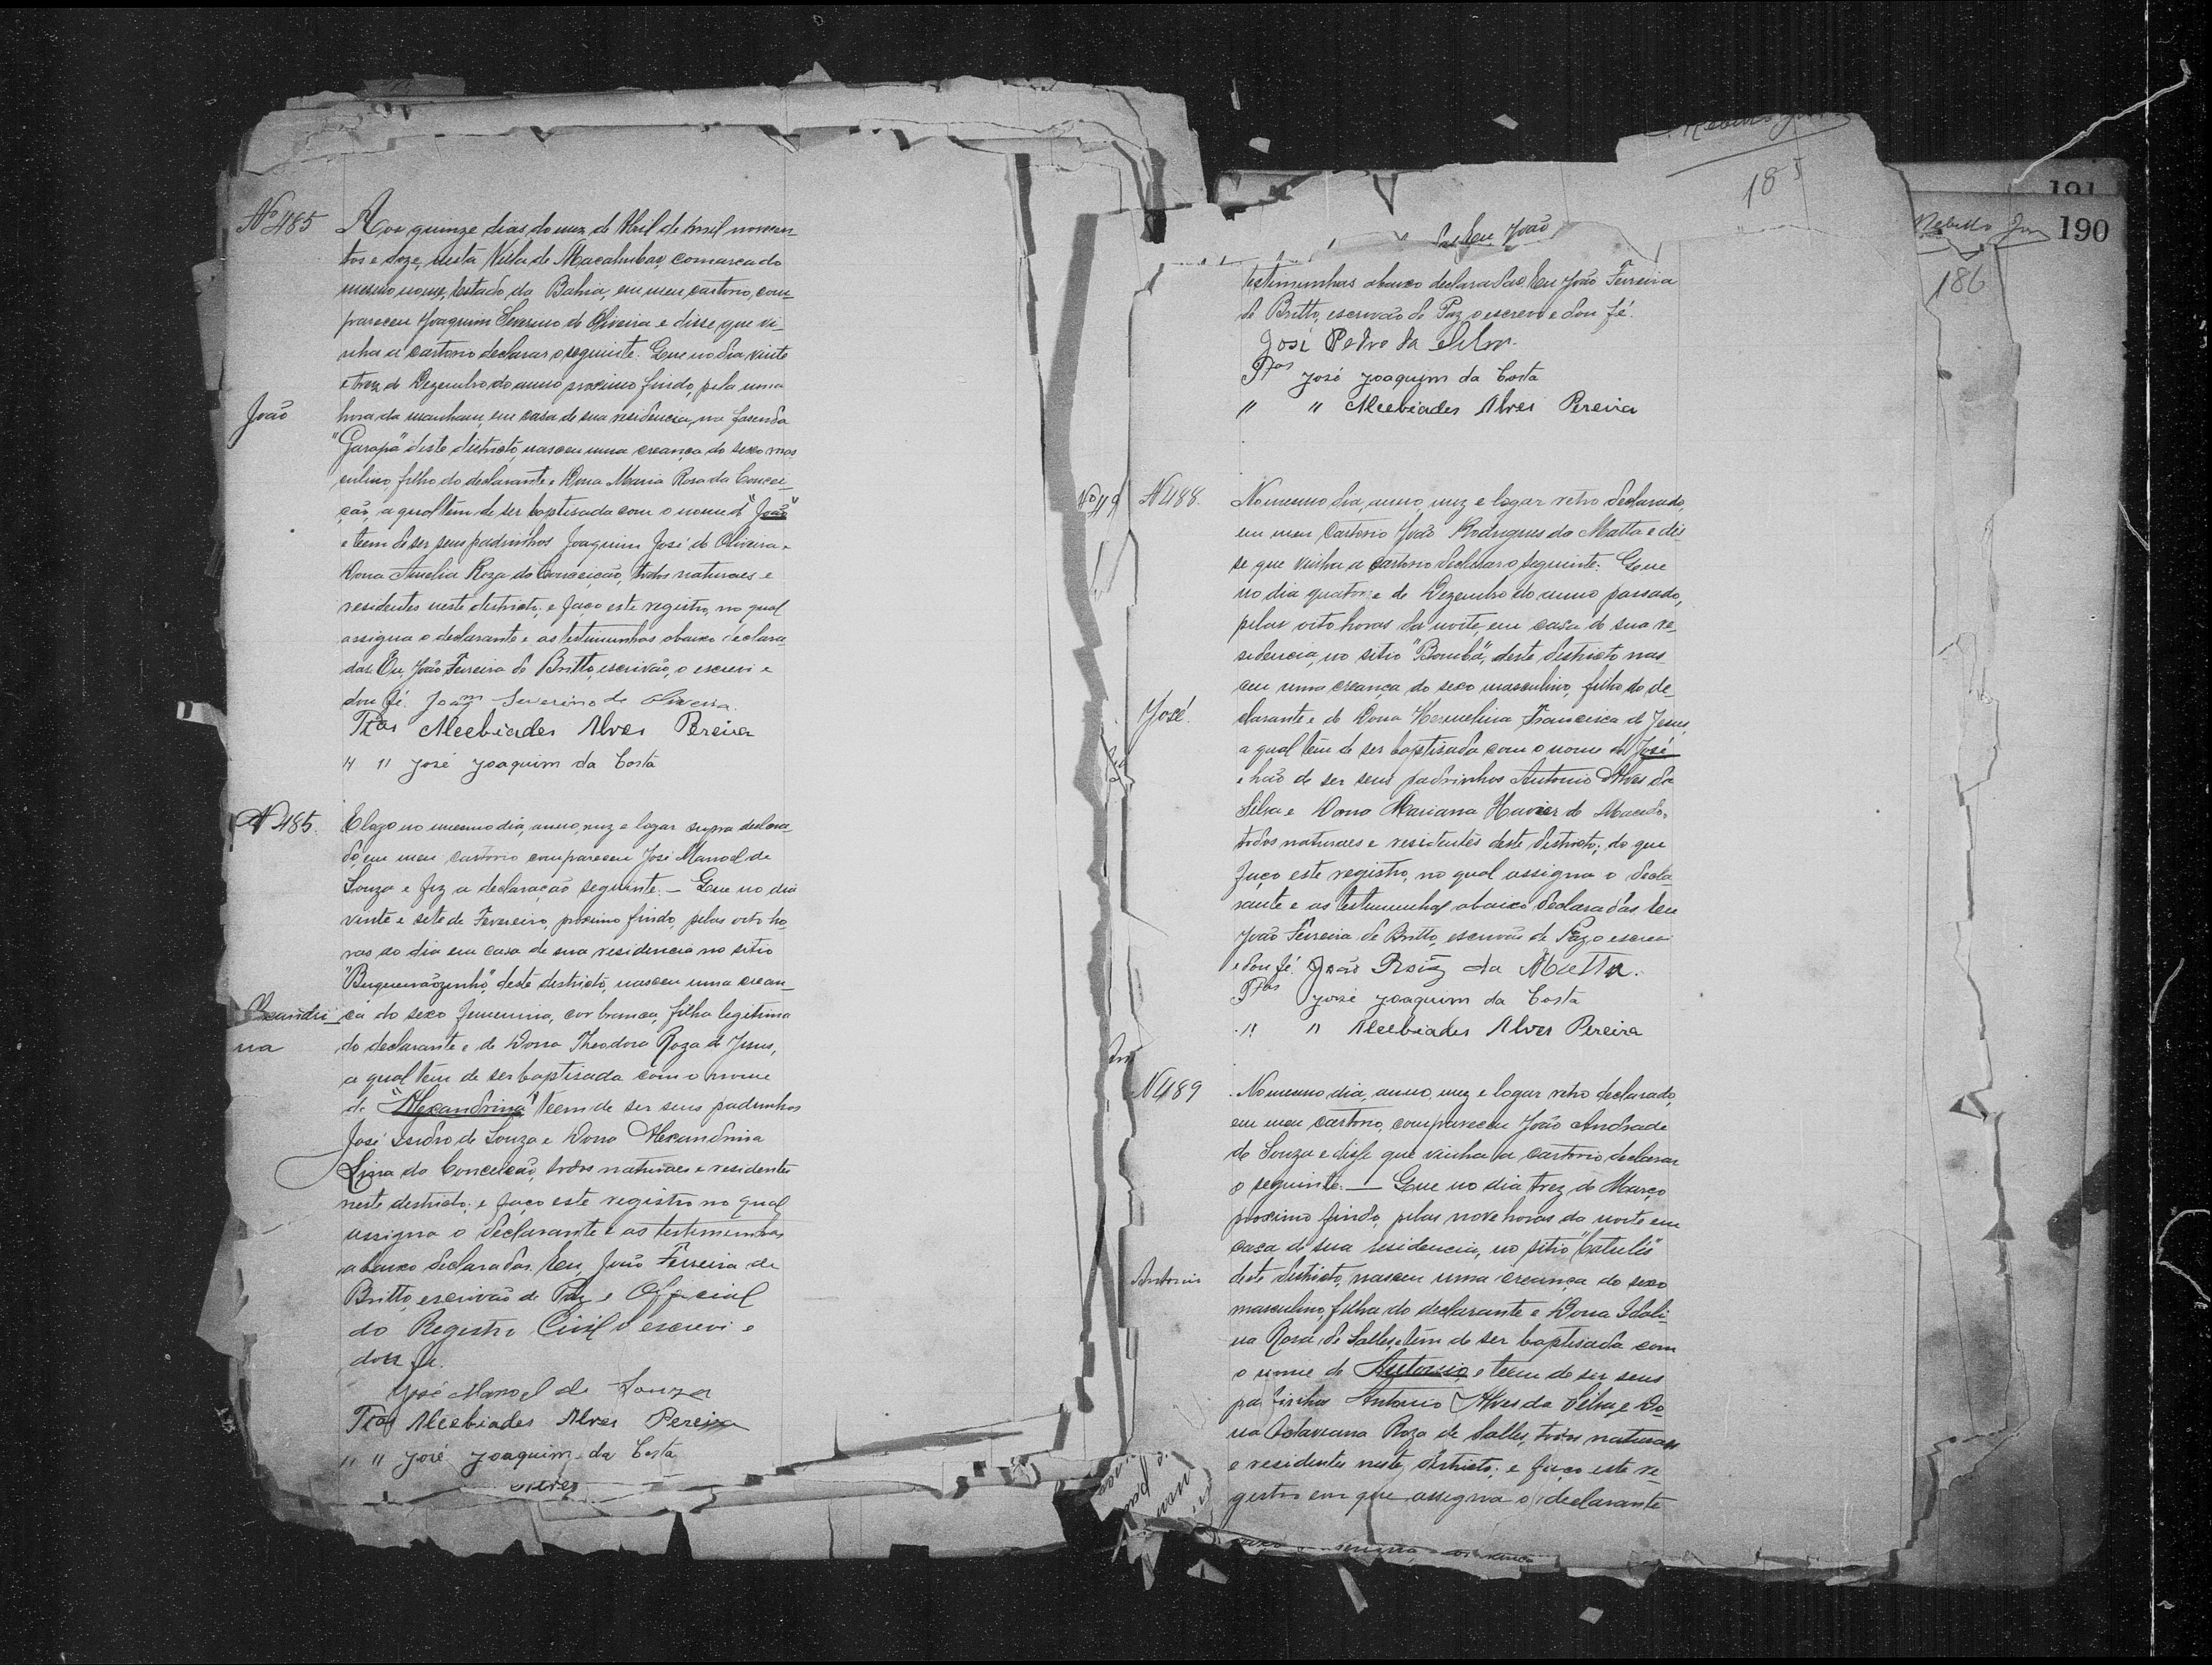 Nº 485
Aos quinze dias do mez de Abril de mil novecen-
tos e doze, nesta Villa de Macahubas, comarca do
mesmo nome, Estado da Bahia, em meu cartorio, com-
pareceu Joaquim Severino de Oliveira e disse que vi-
nha a cartorio declarar o seguinte: Que no dia vinte
e trez de Dezembro do anno proximo findo, pela uma
João
hora da manham, em casa de sua residencia, na fasenda
"Garapa" deste districto, nasceu uma creança do sexo mas
culino, filho do declarante e Dona Maria Rosa da Concei-
ção, a qual tem de ser baptisada com o nome de "João"
e teem de ser seus padrinhos Joaquim José de Oliveira e
Dona Amelia Roza da Conceição, todos naturaes e
residentes neste destricto; e faço este registro, no qual
assigna o declarante e as testemunhas abaixo declara-
das. Eu, João Ferreira de Britto, escrivão, o escrevi e
dou fé. Joaqm Severino de Oliveira.
Ttas Alcebiades Alves Pereira
" " José Joaquim da Costa
Nº 485.
E logo no mesmo dia, anno, mez e logar supra declara-
do, em meu cartorio compareceu José Manoel de
Souza e fez a declaração seguinte: — Que no dia
vinte e sete de Fevereiro, proximo findo, pelas oito ho-
ras do dia em casa de sua residencia no sitio
deste destricto, nasceu uma crean-
Alexandri-
na
ça do sexo femenino, cor branca, filha legitima
do declarante e de Dona Theodora Roza de Jesus,
a qual tem de ser baptisada com o nome
de "Alexandrina" teem de ser seus padrinhos
José Isidro de Souza e Dona Alexandrina
da Conceição, todos naturaes e residentes
neste destricto; e faço este registro no qual
assigna o declarante e as testemunhas
abaixo declaradas. Eu, João Ferreira de
Britto, escrivão de Paz e Official
do Registro Civil o escrevi e
dou fé.
José Manoel de Souza
Ttas Alcebiades Alves Pereira
" " José Joaquim da Costa
185
Eu João
testemunhas abaixo declaradas. Eu João Ferreira
de Britto, escrivão de Paz o escrevi e dou fé.
José Pedro da Silva.
Ttas José Joaquim da Costa
" " Alcebiades Alves Pereira
N 488.
No mesmo dia, anno, mez e logar retro declarado,
em meu Cartorio João Rodrigues da Matta e dis-
se que vinha a cartorio declarar o seguinte: Que
no dia quatorze de Dezembro do anno passado,
pelas oito horas da noite, em casa de sua re-
sidencia, no sitio "Bomba", deste destricto nas-
ceu uma creança do sexo masculino, filho do de-
José.
clarante e de Dona Hermelina Francisca de Jesus,
a qual tem de ser baptisada com o nome de José
e hão de ser seus padrinhos Antonio Alves da
Silva e Dona Mariana Xavier de Macedo,
todos naturaes e residentes deste destricto; do que
faço este registro, no qual assigna o decla-
rante e as testemunhas abaixo declaradas. Eu
João Ferreira de Britto, escrivão de Paz o escrevi
e dou fé. João Roiz da Matta.
Ttas José Joaquim da Costa
" " Alcebiades Alves Pereira
N 489
No mesmo dia, anno, mez e logar retro declarado,
em meu cartorio, compareceu João Andrade
de Souza e disse que vinha a cartorio declarar
o seguinte: — Que no dia trez de Março
proximo findo, pelas nove horas da noite em
casa de sua residencia, no sitio "Catulés"
Antonio
deste destricto, nasceu uma creança do sexo
masculino, filha do declarante e Dona Idali-
na Rosa de Salles, e tem de ser baptisada com
o nome de Antonio e teem de ser seus
padrinhos Antonio Alves da Silva, e Do-
na Octaviana Roza de Salles, todos naturaes
e residentes neste destricto; e faço este re-
gistro em que assigna o declarante
191
190
186